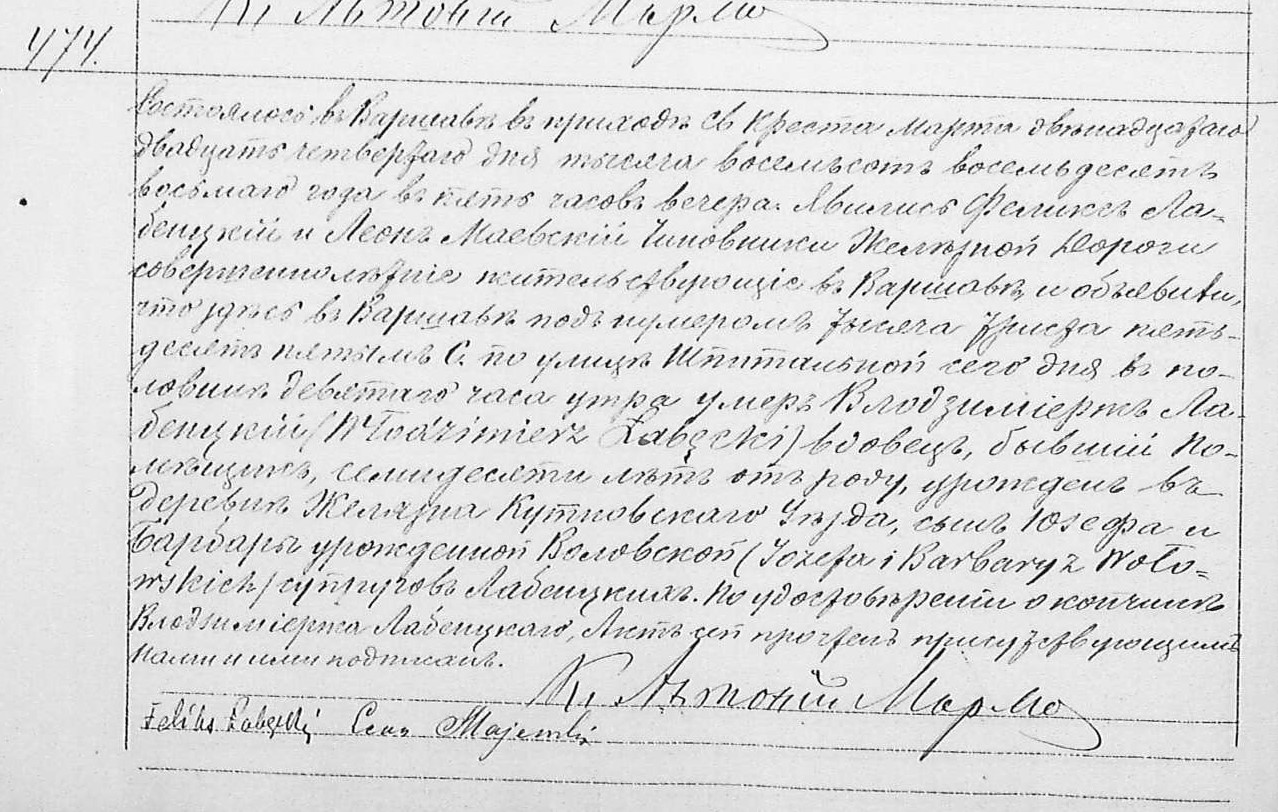 Кс Антоній Мармо
474.
Состоялось въ Варшавѣ въ приходѣ Св Креста Марта двѣнадцатаго
двадцать четвертаго дня тысяча восемьсотъ восемьдесятъ
восьмаго года въ пять часовъ вечера. Явились Феликсъ Ла-
бенцкій и Леонъ Маевскій Чиновники Желѣзной Дороги
совершеннолѣтніе жительствующіе въ Варшавѣ, и объявили,
что здѣсь въ Варшавѣ подъ нумеромъ тысяча триста пять-
десятъ пятымъ С. по улицѣ Шпитальной сего дня въ по-
ловинѣ девятаго часа утра умеръ Влодзимѣржъ Ла-
бенцкій (Włodzimierz Łabęcki) вдовецъ, бывшій по-
мѣщикъ, семидесяти лѣтъ отъ роду, урожденъ въ
деревнѣ Желязна Кутновскаго Уѣзда, сынъ Юзефа и
Барбары урожденной Воловской (Józefa i Barbary z Woło-
wskich) супруговъ Лабенцкихъ. По удостовѣреніи о кончинѣ
Влодзимѣржа Лабенцкаго, Актъ сей прочтенъ присутствующимъ
Нами и ими подписанъ.
Кс Антоній Мармо
Feliks Łabęcki Leon Majewski